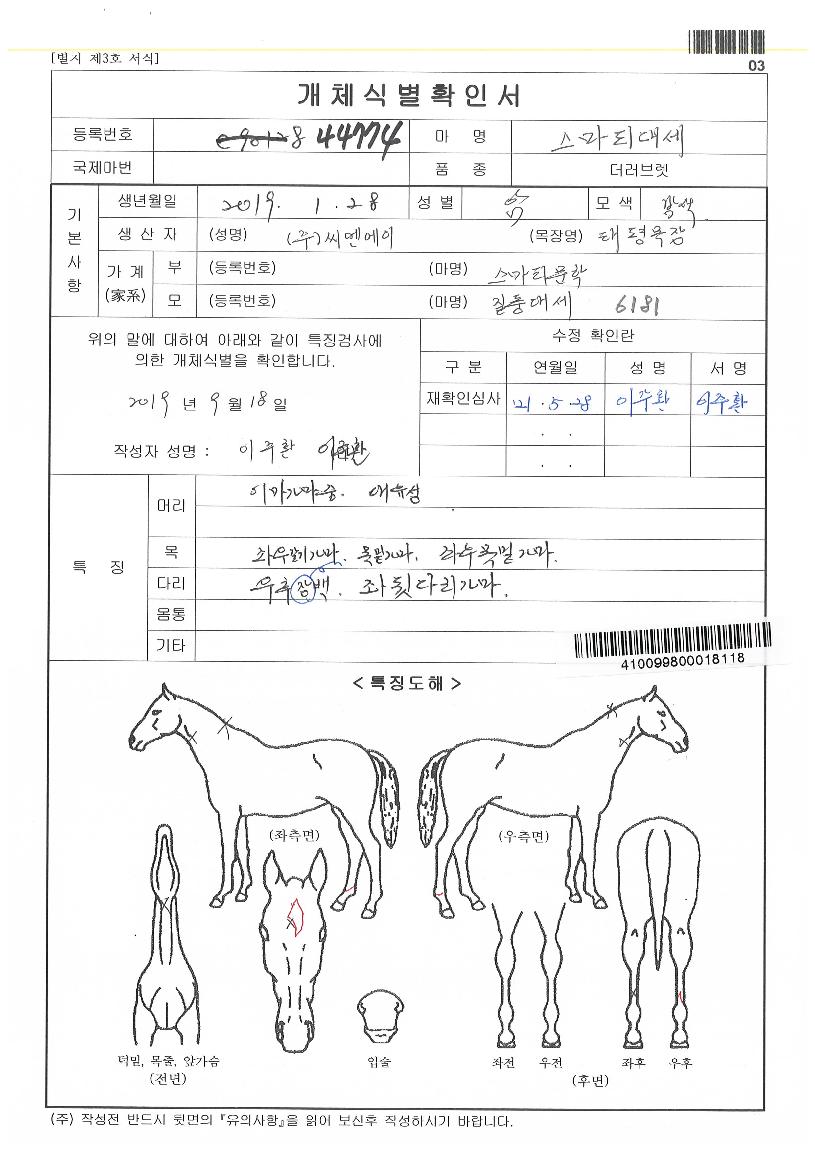 [별지 제3호 서식]
03
개체식별확인서
등록번호 44774 마 명 스마티대세
국제마번 품 종 더러브렛
기본사항
생년월일 2019. 1. 28 성 별 암 모 색 갈색
생 산 자 (성명) (주)씨엔에이 (목장명) 태평목장
가 계 (家系)
부 (등록번호) (마명) 스마티문학
모 (등록번호) (마명) 질풍대세 6181
위의 말에 대하여 아래와 같이 특징검사에
의한 개체식별을 확인합니다.
2019 년 9 월 18 일
작성자 성명 : 이주환 이주환
수정 확인란
구 분 연월일 성 명 서 명
재확인심사 '21. 5. 28 이주환 이주환
. .
. .
특 징
머리 이마가마중. 대유성
목 목밑가마.
다리 우후장백. 좌뒷다리가마.
몸통
기타
410099800018118
< 특징도해 >
(좌측면) (우측면)
턱밑, 목줄, 앞가슴 입술 좌전 우전 좌후 우후
(전년) (후면)
(주) 작성전 반드시 뒷면의 『유의사항』을 읽어 보신후 작성하시기 바랍니다.